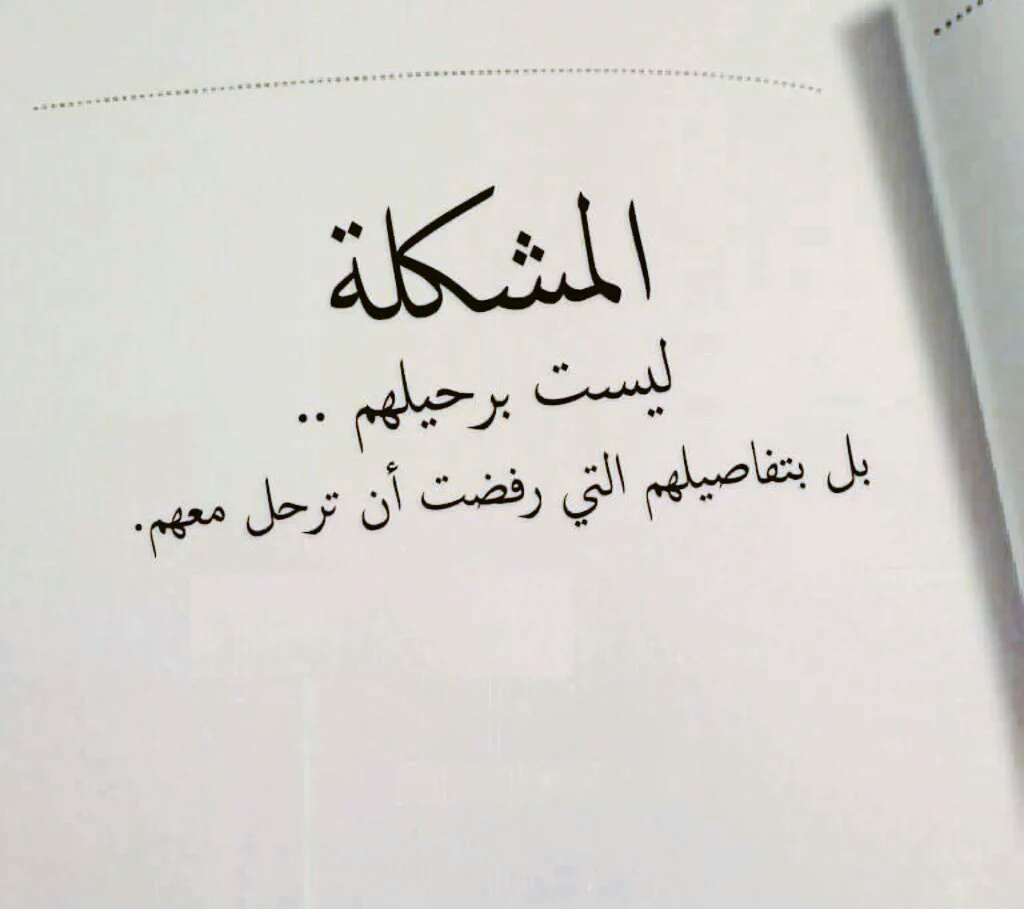 المشكلة
ليست برحيلهم ..
بل بتفاصيلهم التي رفضت أن ترحل معهم.